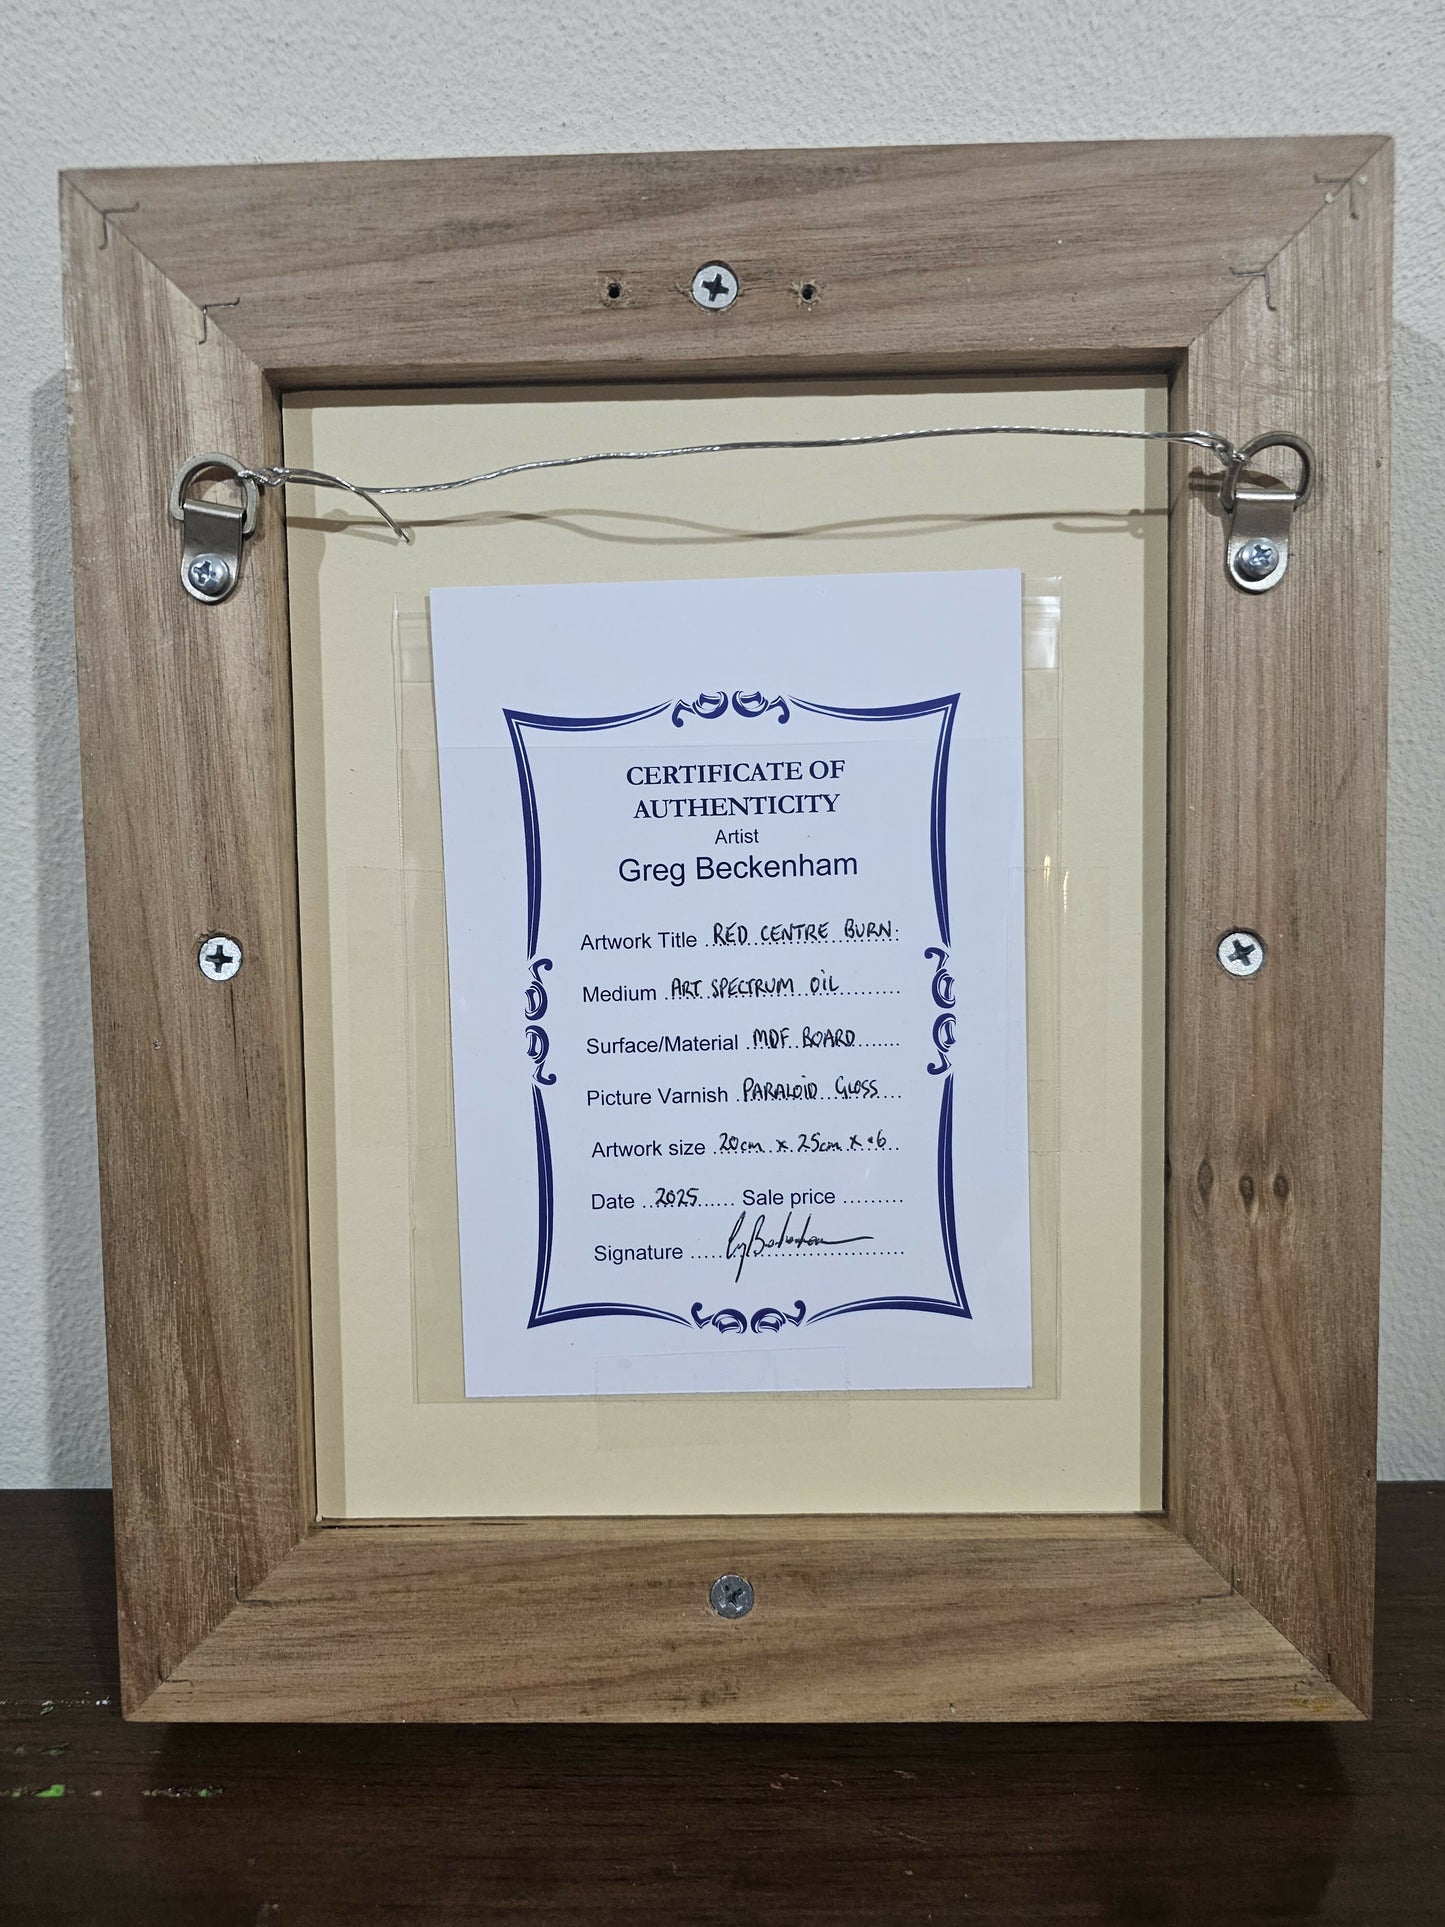 CERTIFICATE OF
AUTHENTICITY
Artist
Greg Beckenham
Artwork Title ..RED CENTRE BURN.
Medium .ART SPECTRUM OIL..........
Surface/Material .MDF BOARD.......
Picture Varnish .PARALOID GLOSS....
Artwork size .20cm x 25cm x .6..
Date ..2025...... Sale price .........
Signature .....